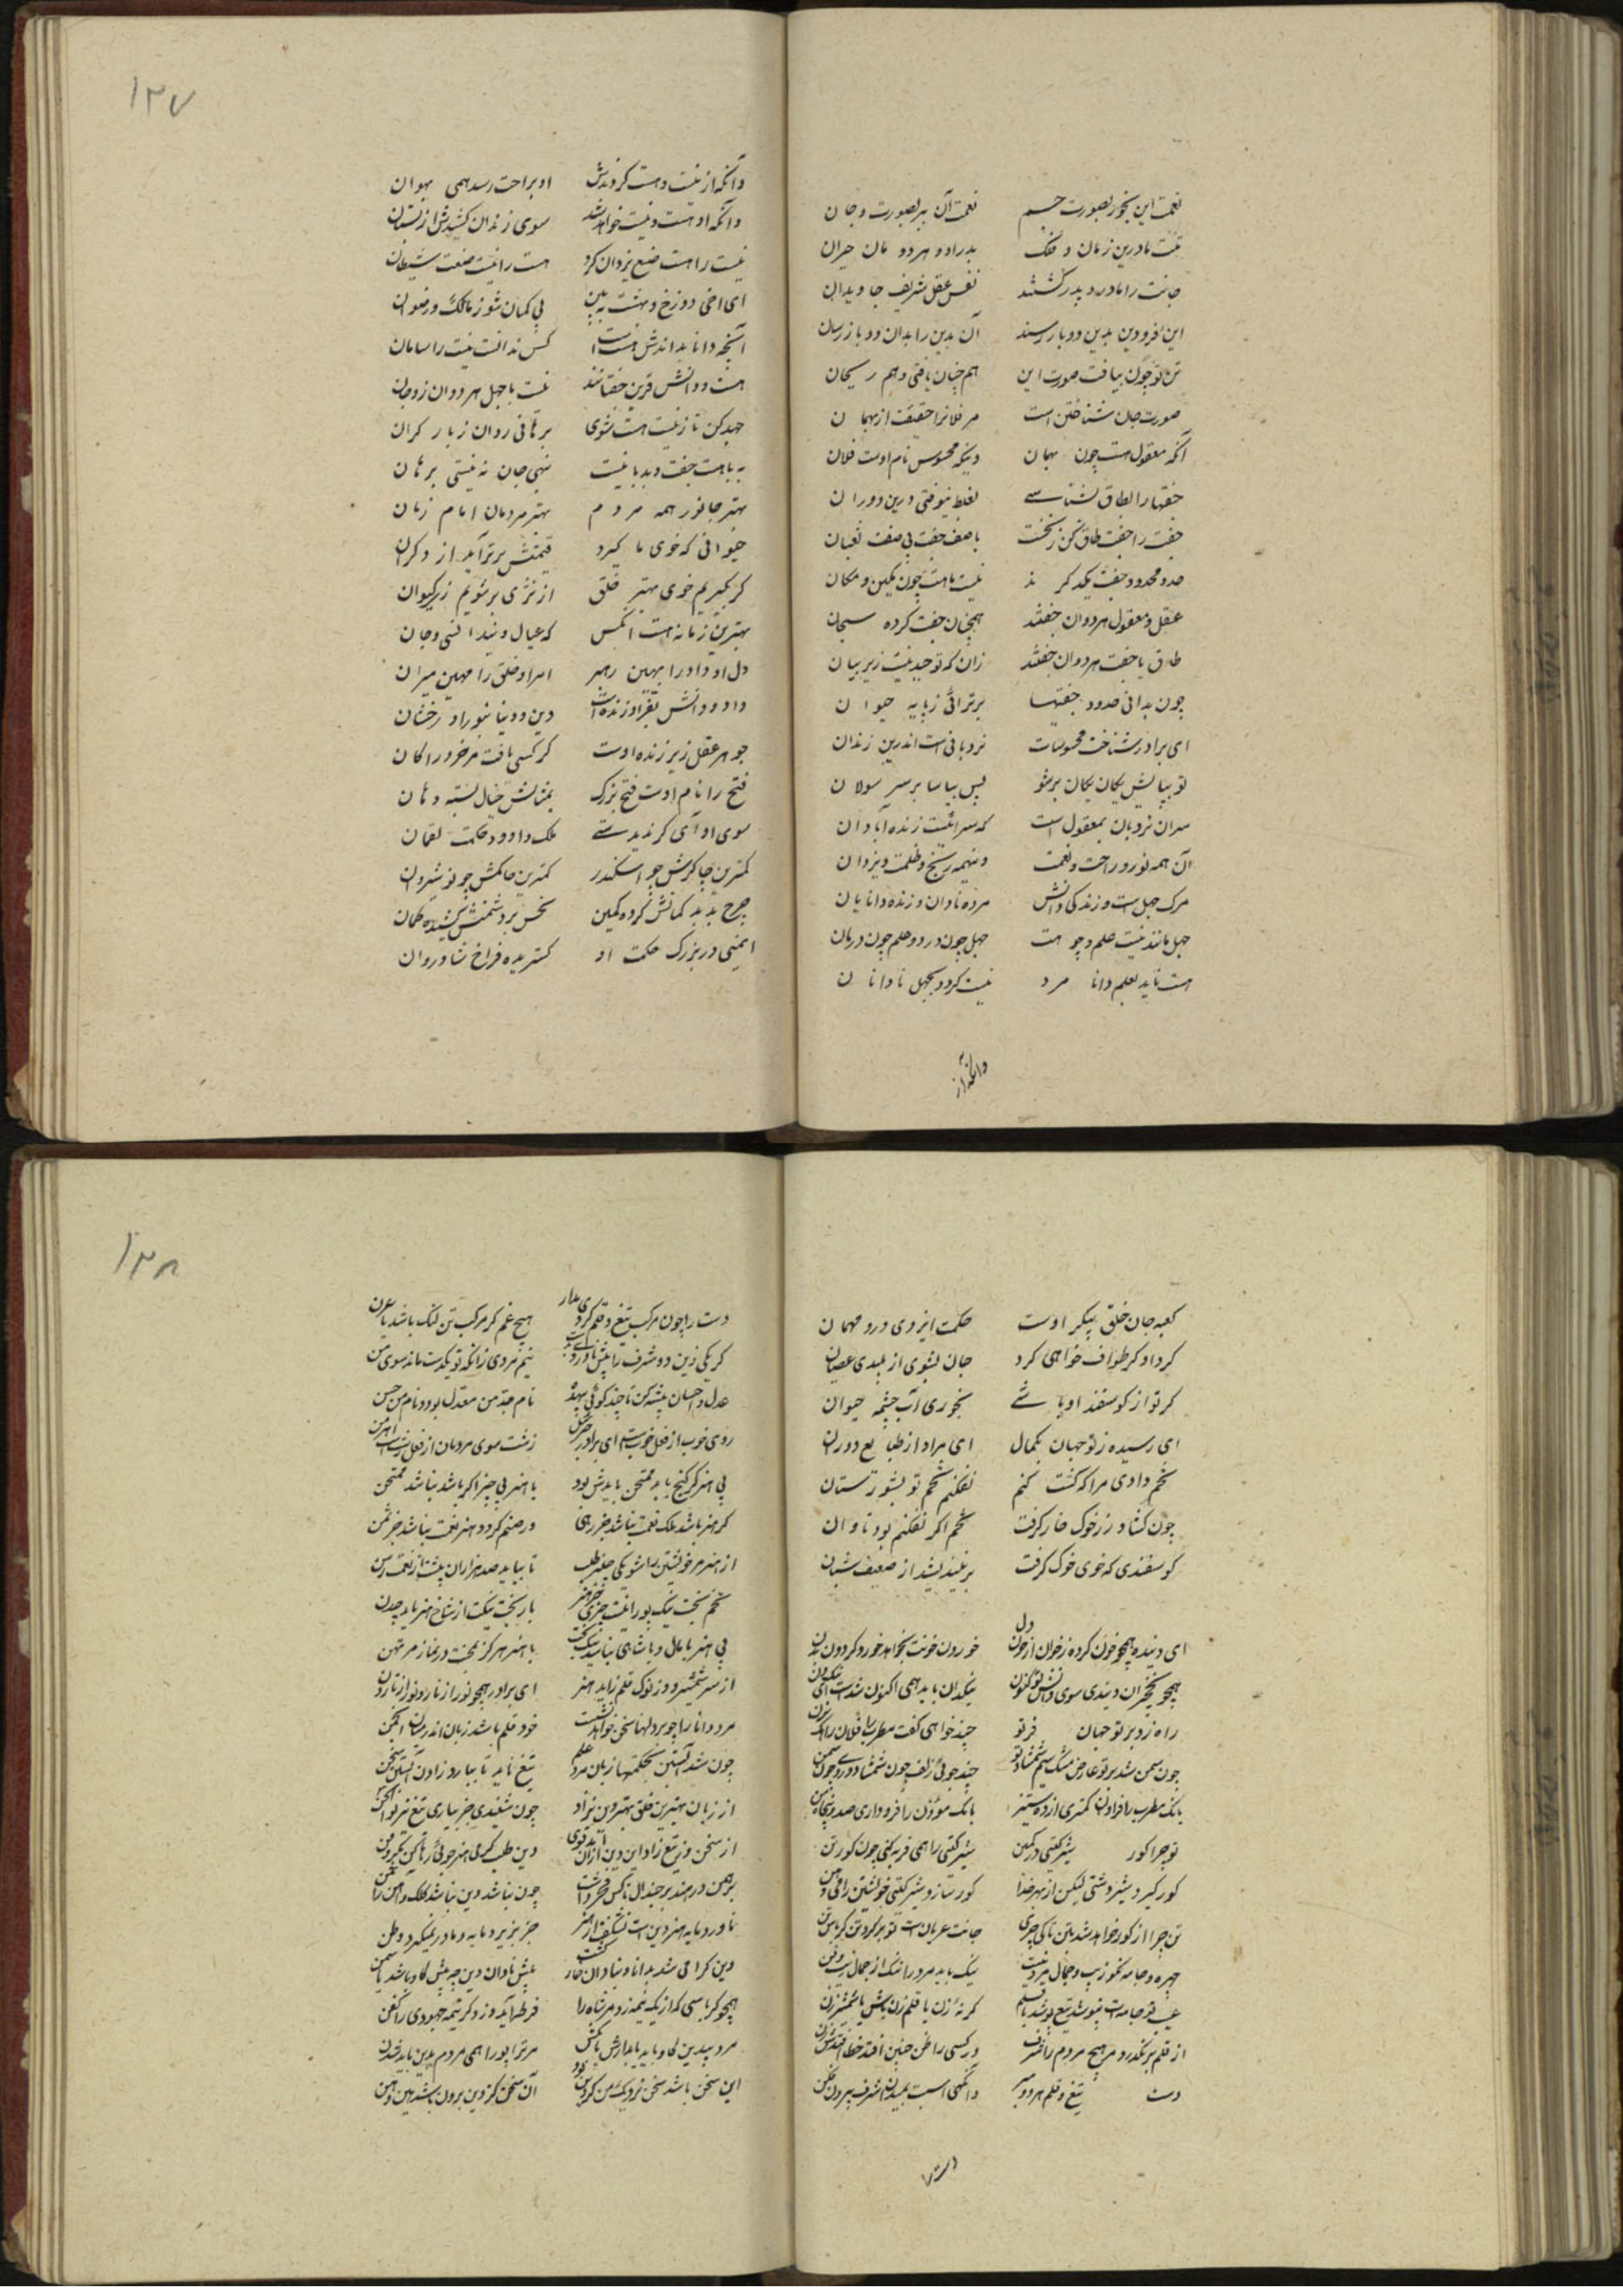 ۱۲۷
نعمت این بخور بصورت جسم نعمت آن ببر بصورت و جان
تنت مادرین زمان و فلک پدر او و هر دو مان حیران
جانت را مادر و پدر کشتند نفس و عقل شریف جاویدان
این فرودین بدین دو باز رسند آن بدین را بدان دو باز رسان
تن تو چون بیافت صورت این هم چنان یافتی و هم ریحان
صورت جان شناختن است مر فلانرا حقیقت از بهمان
آنکه معقول هست چون بهمان وینکه محسوس نام اوست فلان
جفتها را بطاق نشناسے بغلط نیوفتی درین دوران
جفت را جفت و طاق کن ز نخست با صف جفت بی صف نعبان
حد و محدود جفت یکدگرند نیست با هست چون مکین و مکان
عقل و معقول هر دوان جفتند همچنان جفت کرده سبحان
طاق با جفت هر دوان جفتند زان که توحید نیست زیر بیان
چون بدانی حدود جفتیها برترائی ز پایه حیوان
ای برادر شناخت محسوسات نردبانی است اندرین زندان
تو بپایش یکان یکان برشو پس بیاسا بر سر سولان
سر آن نردبان بمعقول است که سرائیست زنده آبادان
آن همه نور و راحت و نعمت وینهمه رنج و ظلمت و نیران
مرگ جهل است و زندگی دانش مرده نادان و زنده دانایان
جهل مانند نیست علم چو هست جهل چون درد و علم چون درمان
هست ناید بعلم دانا مرد نیست گردد بجهل نادانان
وانکه از
وانکه از نیست هست کردندش او براحت رسد همی بهوان
وانکه او هست و نیست خواهد شد سوی زندان کشیدش از بستان
نیست را هست صنع یزدان کرد هست را نیست صنعت شیطان
ای اخی دوزخ و بهشت ببین بی کمان شو ز مالک و رضوان
آنچه دانا بداندش هست است کس ندانست نیست را سامان
هست و دانش قرین جفتانند نیست با جهل هر دوان زوجان
جهد کن تا ز نیست هست شوی برهانی روان ز بار گران
به باهست جفت و بد با نیست نهی جان نه نیستی برهان
بهتر جانور همه مردم بهتر مردمان امام زمان
حیوانی که خوی ما گیرد قیمتش برتر آید از دگران
گر بگیریم خوی بهتر خلق از نژی برشویم زی کیوان
بهترین زمانه هست انکس که عیال ویند انسی و جان
دل او داد را بهین رهبر امر او خلق را مهین میزان
داد و دانش بفر او زنده است دین و دنیا بنور او رخشان
جوهر عقل زیر زنده اوست گر کسی یافت مر خرد را کان
فتح را نام اوست فتح بزرگ بمثالش خیال بسته دهان
سوی او آی گر ندیدستے ملک داوود و حکمت لقمان
کمترین چاکرش چو اسکندر کمترین حاکمش چو نوشیروان
چرخ بد بند کمانش کرده کمین نحس بر دشمنش کشیده کمان
ایمنی در بزرگ حکمت او گستریده فراخ شادروان
۱۲۸
کعبه جان خلق پیکر اوست حکمت ایزدی درو مهمان
گرد او گر طواف خواهی کرد جان بشوی از پلیدی عصیان
گر تو از گوسفند او باشے بخوری آب چشمه حیوان
ای رسیده ز تو جهان بکمال ای مراد از طبایع دوران
تخم دادی مرا که کشت کنم نفکنم تخم تو بشورستان
چون کشاورز خوک خار گرفت تخم اگر نفکنم بود تاوان
گوسفندی که خوی خوک گرفت بر نیندیشد از ضعیف شبان
ای دنیده همچو خون کرده رخوان از خون دل خوردن خونت بخواهد خورد گردون دن بدن
همچو نخچیران دنیدی سوی دانش دن کنون نیکدان باید همی اکنون شدنت ای نیکدن
راه زد بر تو جهان فر تو چند خواهی گفت مطرب را فلان راهک بزن
چون سمن شد بر تو عارض مشک سیم شمشاد تو چند جوئی زلف چون شمشاد و روی چون سمن
بانگ مطرب را فزاوان کمتری از ده ستیر بانگ موذن را فروداری صد و پنجاه من
تو چرا گور شیر کشتی در کمین شیر کشتی را همی فربه کنی چون گور تن
گور گیرد شیر دشتی لیکن از بهر خدا گور سازد شیر کشتی خویشتن را فی دهن
تن چرا از گور خواهد شد بتن تا کی چری جانت عریان است تو بر گرد تن کرباس تن
چهره و جامه نکو زیب و جمال مرد نیست نیک باید مرد را ننگ از جمال نیک و فن
عیب تو جامه است نپوشد تیغ پوشد یا قلم گر نهٔ زن یا قلم زن باش یا شمشیر زن
از قلم بر نگذرد مر هیچ مردم را شرف ور کسی را ظن چنین افتد خطا افتدش ظن
دست تیغ و قلم هر دو وانگهی اسب بمیدان شرف بیرون فکن
دست را
دست را چون مرکب تیغ و قلم کردی مدار هیچ غم گر مرکب تن لنگ باشد یا عرن
گر یکی زین دو شرف را پیش ناورده است نیم مردی زانکه تو یکدست ماند سوی من
عدل و احسان پیشه کن تا چند گوئی بیهده نام جد من معدل بود و نام من حسن
روی خوب از فعل خوبست ای برادر بی حزن زشت سوی مردمان از فعل زشت است اهرمن
بی هنر گر گنج یابد ممتحن بایدش بود با هنر بی چیز اگر باشد نباشد ممتحن
گر هنر باشد ملک نعمت نباشد جز رهی ور صنم گردد هنر نعمت نباشد جز شمن
از هنر مر خویشتن را شو یکی حله طلب تا بیاید صد هزاران پیشت از نعمت رسن
تخم بخت نیک پورا نیست چیزی جز هنر بار بخت نیکت از شاخ هنر باید چدن
بی هنر با مال و با شاهی نباشد نیکبخت با هنر هرگز نبخت در نماز مرتهن
از سر شمشیر و وز نوک قلم زاید هنر ای برادر همچو نور از نار و نار از نارون
مرد دانا را چو بر دلها سخن خواهد نبشت خود قلم باشد زبان اندر میان انجمن
چون شد آبستن بحکمتها زبان مرد علم تیغ ناید تا بیارد زادن آبستن سخن
از زبان بهترین خلق بهتر دین نزاد چون شنیدی جز بیاری تیغ تیز بو الحسن
از سخن وز تیغ زاد این دین ازان آمد قوی دین طلب گر می هنر جوئی رها کن مکر و فن
برهمن در هند بر چندال ناکس فخر داشت چون نباشد دین نباشد کلک و آهن را ثمن
نادرد مایه هنر دین است نشگفت ار هنر جز بزیر دمایه و مادر نگیرد وطن
دین گرامی شد بدانا و بنادان خوار گشت پیش نادان دین چو پیش گاو باشد یاسمن
همچو کرباسی که از یک نیمه زو مر شاه را قرطه آید وز دگر نیمه جهودی را کفن
مرد بیدین گاو باید پایدارش پا مکش مر ترا پورا همی مردم بدین باید شدن
این سخن باشد سخن نزدیک من کز دین بود آن سخن کز دین برون باشد همین وهن